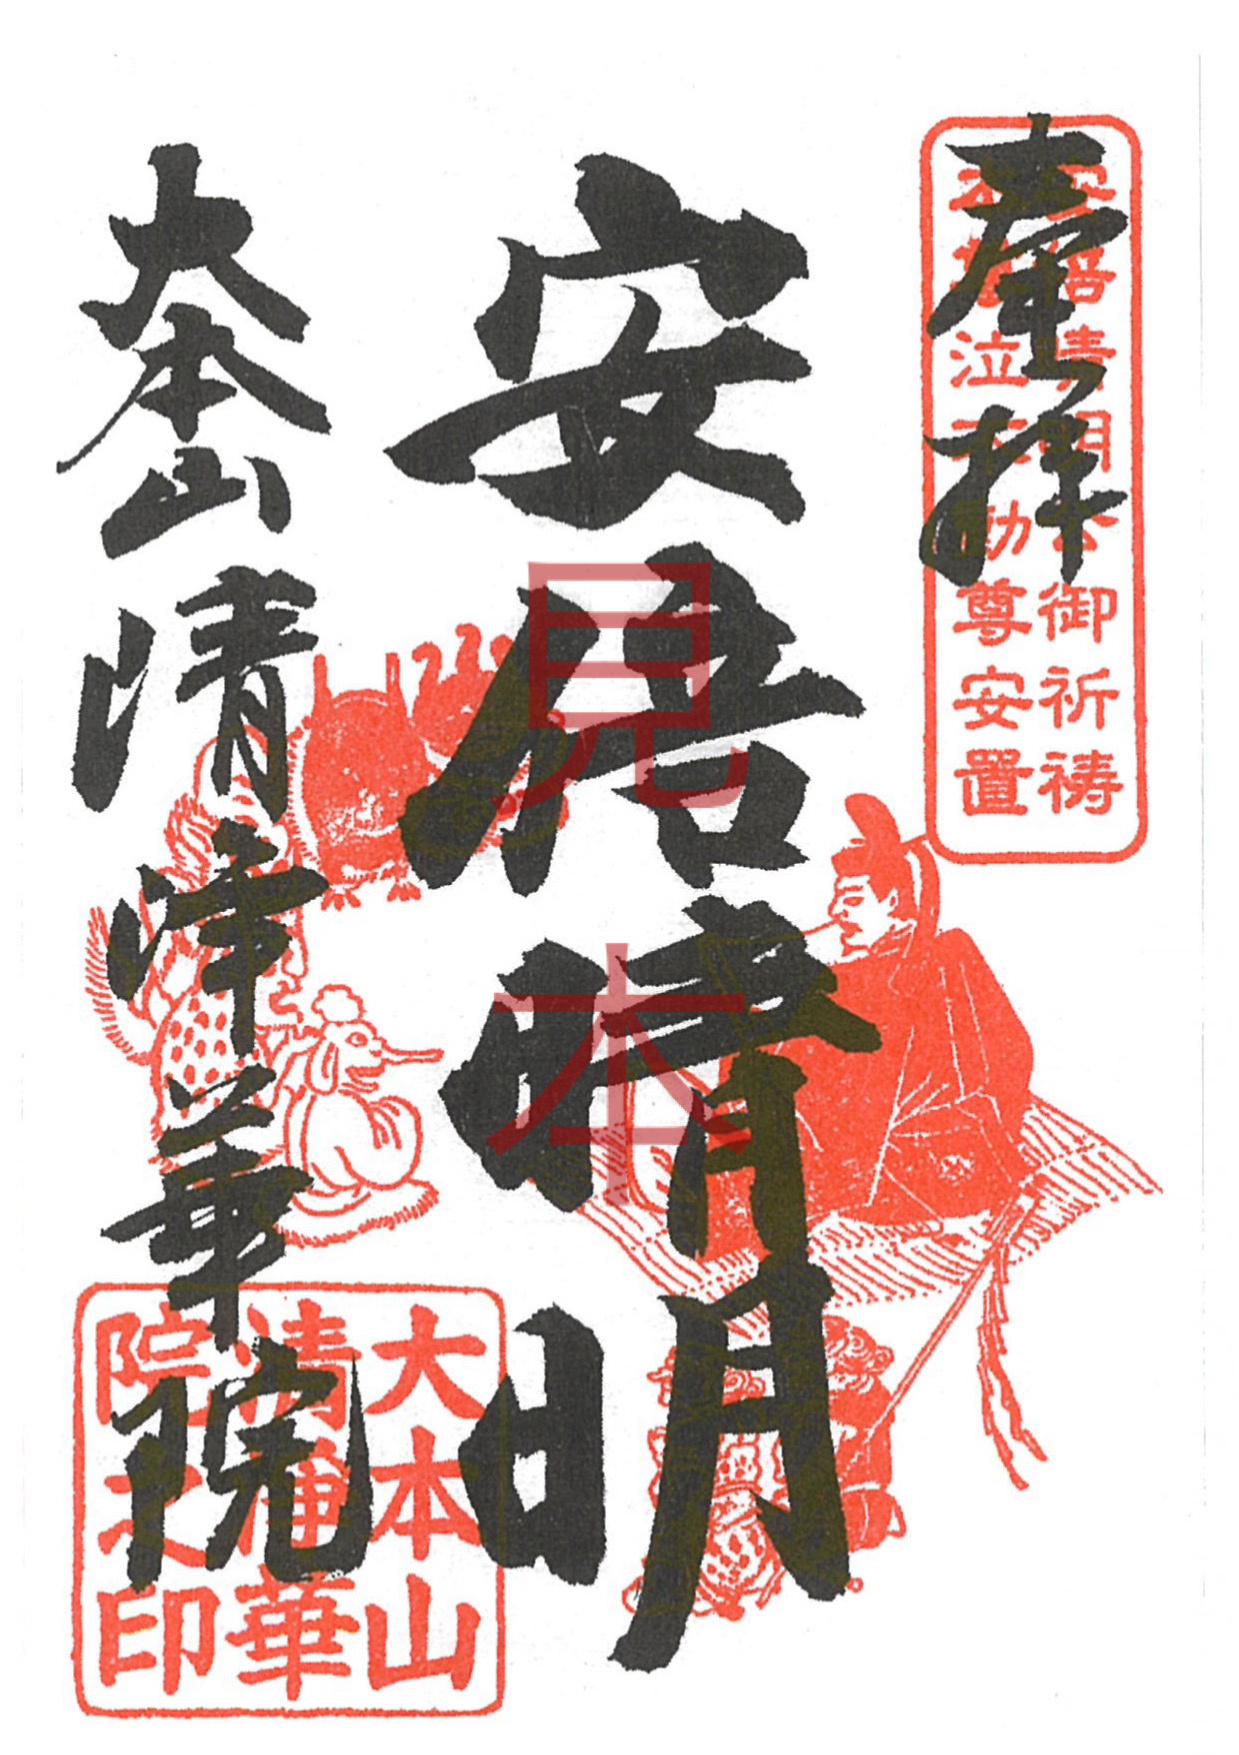 奉拝
安倍晴明公御祈祷
泣不動尊安置
安倍晴明
大本山清浄華院
大本山
清浄華
院之印
見本